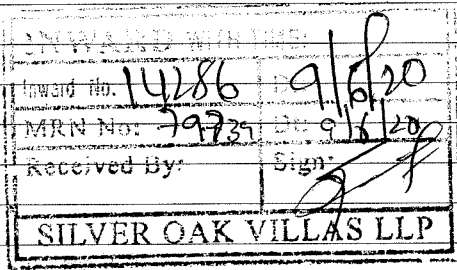 INWARD WITH TIME:
Inward No. 14286 Dt: 9/6/20
MRN No: 79739 Dt: 9/6/20
Received By: Sign:
SILVER OAK VILLAS LLP